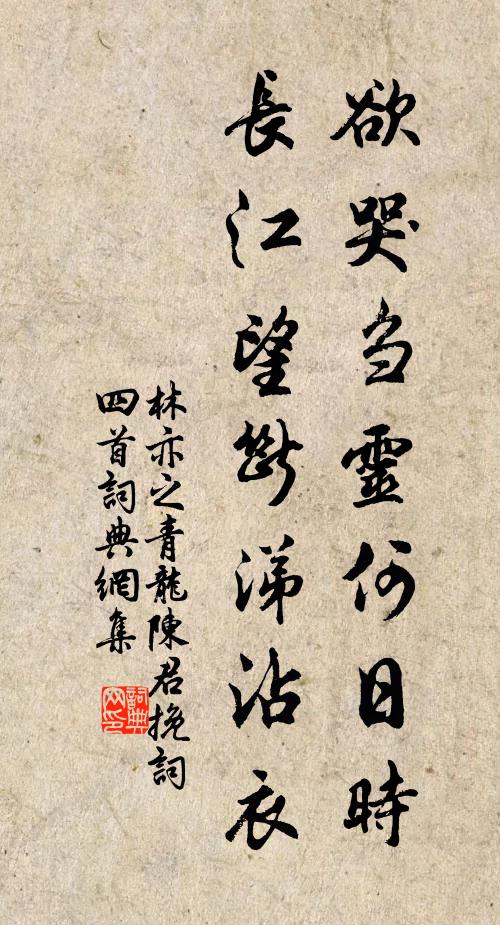 欲哭刍靈何日時
長江望斷涕沾衣
林亦之青龍陳君挽詞
四首詞典網集
詞典网印